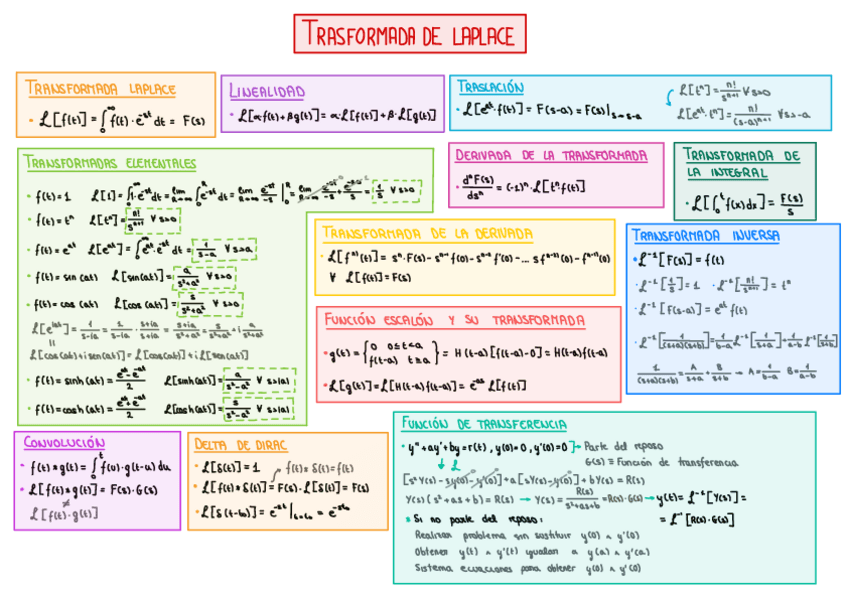 TRASFORMADA DE LAPLACE
TRANSFORMADA LAPLACE
• ℒ[f(t)] = ∫₀^∞ f(t)·e^-st dt = F(s)
LINEALIDAD
• ℒ[αf(t)+βg(t)] = α·ℒ[f(t)]+β·ℒ[g(t)]
TRASLACIÓN
• ℒ[e^at·f(t)] = F(s-a) = F(s)|s→s-a
ℒ[t^n] = n!/s^(n+1) ∀s>0
ℒ[e^at·t^n] = n!/(s-a)^(n+1) ∀s>-a
TRANSFORMADAS ELEMENTALES
• f(t)=1 ℒ[1] = 1/s ∀s>0
• f(t)=t^n ℒ[t^n] = n!/s^(n+1) ∀s>0
• f(t)=e^at ℒ[e^at] = ∫₀^∞ e^at·e^-st dt = 1/(s-a) ∀s>a
• f(t)=sin(at) ℒ[sin(at)] = a/(s²+a²) ∀s>0
• f(t)=cos(at) ℒ[cos(at)] = s/(s²+a²) ∀s>0
ℒ[e^iat] = 1/(s-ia) = 1/(s-ia) · (s+ia)/(s+ia) = (s+ia)/(s²+a²) = s/(s²+a²) + i a/(s²+a²)
॥
ℒ[cos(at)+i sen(at)] = ℒ[cos(at)]+iℒ[sen(at)]
• f(t)=sinh(at) = (e^at-e^-at)/2 ℒ[sinh(at)] = a/(s²-a²) ∀s>|a|
• f(t)=cosh(at) = (e^at+e^-at)/2 ℒ[cosh(at)] = s/(s²-a²) ∀s>|a|
DERIVADA DE LA TRANSFORMADA
• d^nF(s)/ds^n = (-1)^n·ℒ[t^n f(t)]
TRANSFORMADA DE
LA INTEGRAL
• ℒ[∫₀^t f(x)dx] = F(s)/s
TRANSFORMADA DE LA DERIVADA
• ℒ[f^n(t)] = s^n·F(s)-s^(n-1) f(0)-s^(n-2) f'(0)-... s f^(n-2)(0)-f^(n-1)(0)
∀ ℒ[f(t)] = F(s)
TRANSFORMADA INVERSA
• ℒ^-1[F(s)] = f(t)
· ℒ^-1[1/s] = 1 · ℒ^-1[n!/s^(n+1)] = t^n
· ℒ^-1[F(s-a)] = e^at f(t)
· ℒ^-1[1/((s+a)(s+b))] = 1/(b-a) ℒ^-1[1/(s+a)] + 1/(a-b) ℒ^-1[1/(s+b)]
1/((s+a)(s+b)) = A/(s+a) + B/(s+b) → A = 1/(b-a) B = 1/(a-b)
FUNCIÓN ESCALÓN Y SU TRANSFORMADA
• g(t) = {0 0≤t<a
f(t-a) t≥a} = H(t-a)[f(t-a)-0] = H(t-a)f(t-a)
• ℒ[g(t)] = ℒ[H(t-a)f(t-a)] = e^-as ℒ[f(t)]
CONVOLUCIÓN
• f(t)*g(t) = ∫₀^t f(u)·g(t-u)du
• ℒ[f(t)*g(t)] = F(s)·G(s)
≠
ℒ[f(t)·g(t)]
DELTA DE DIRAC
• ℒ[δ(t)] = 1 f(t)*δ(t)=f(t)
• ℒ[f(t)*δ(t)] = F(s)·ℒ[δ(t)] = F(s)
• ℒ[δ(t-t₀)] = e^-st|t=t₀ = e^-st₀
FUNCIÓN DE TRANSFERENCIA
• y''+ay'+by=r(t), y(0)=0, y'(0)=0 → Parte del reposo
↓ ℒ G(s) ≡ Función de transferencia
[s²Y(s)-sy(0)-y'(0)]+a[sY(s)-y(0)]+bY(s) = R(s)
Y(s)(s²+as+b) = R(s) → Y(s) = R(s)/(s²+as+b) = R(s)·G(s) → y(t) = ℒ^-1[Y(s)] =
= ℒ^-1[R(s)·G(s)]
• Si no parte del reposo:
Realizar problema sin sustituir y(0) ∧ y'(0)
Obtener y(t) ∧ y'(t) igualan a y(a) ∧ y'(a)
Sistema ecuaciones para obtener y(0) ∧ y'(0)